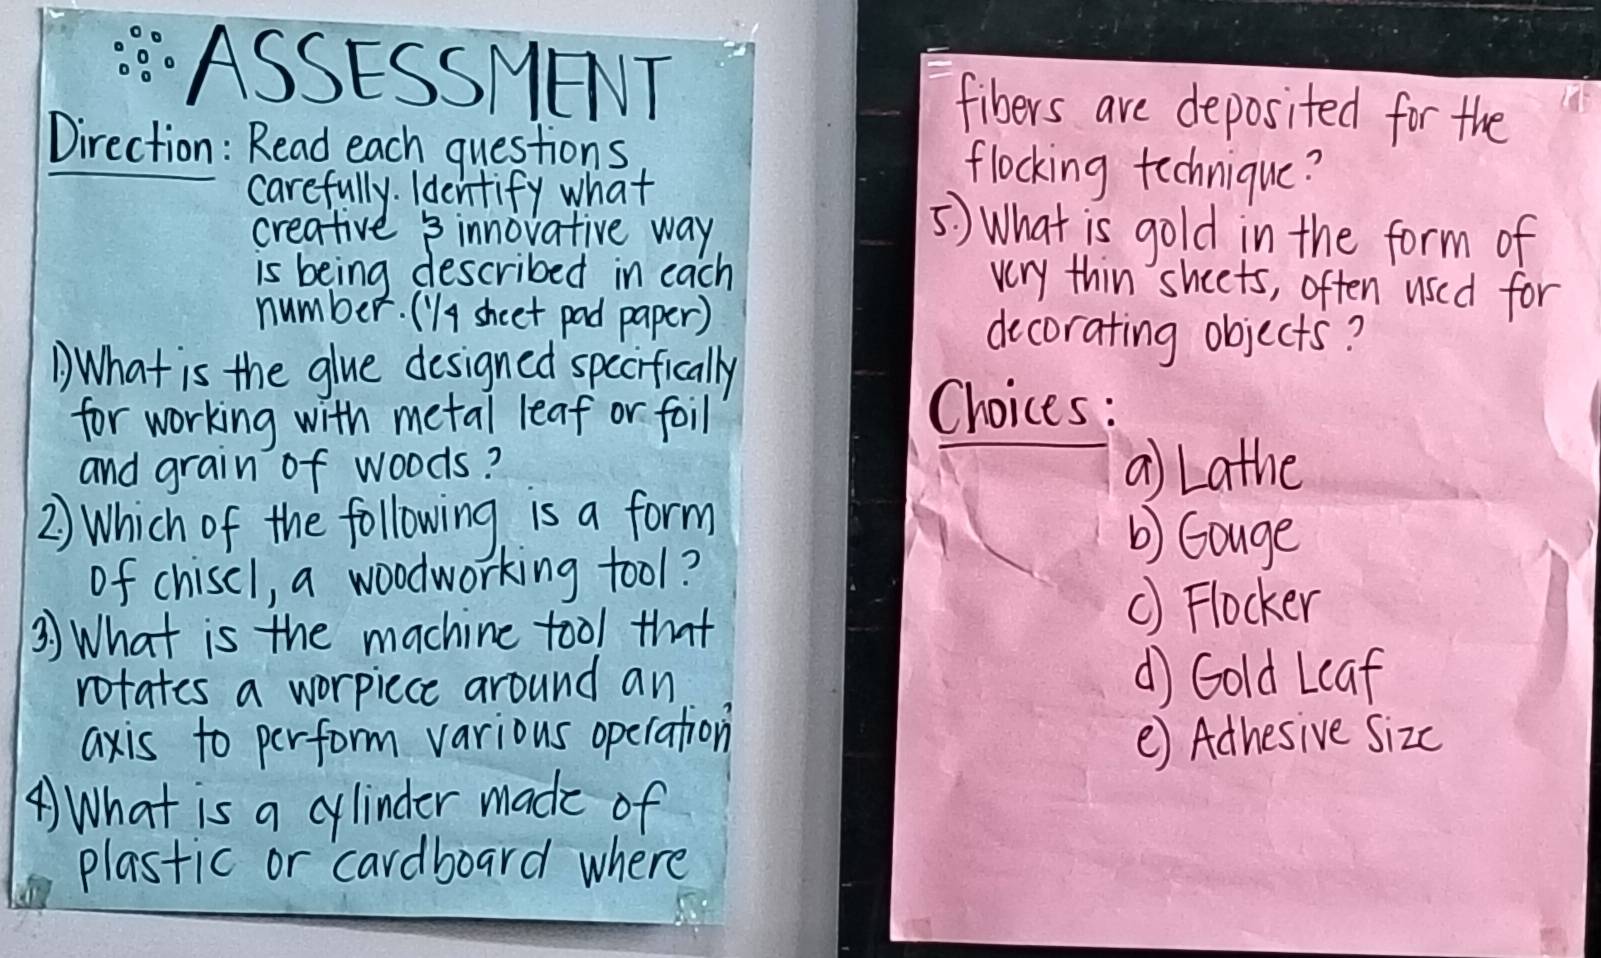 ASSESSMENT
Direction: Read each questions
carefully. Identify what
creative & innovative way
is being described in each
number. (1/4 sheet pad paper)
1.) What is the glue designed specifically
for working with metal leaf or foil
and grain of woods?
2.) Which of the following is a form
of chisel, a woodworking tool?
3.) What is the machine tool that
rotates a worpiece around an
axis to perform various operation
4.) What is a cylinder made of
plastic or cardboard where
fibers are deposited for the
flocking technique?
5.) What is gold in the form of
very thin sheets, often used for
decorating objects?
Choices:
a) Lathe
b) Gouge
c) Flocker
d) Gold Leaf
e) Adhesive Size